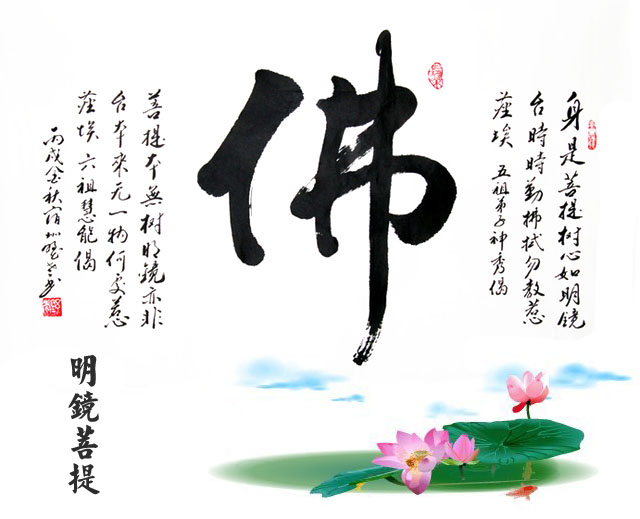 身是菩提樹心如明鏡
台時時勤拂拭勿教惹
塵埃 五祖弟子神秀偈
佛
菩提本無樹明鏡亦非
台本來元一物何處惹
塵埃 六祖慧能偈
丙戌金秋
明鏡菩提